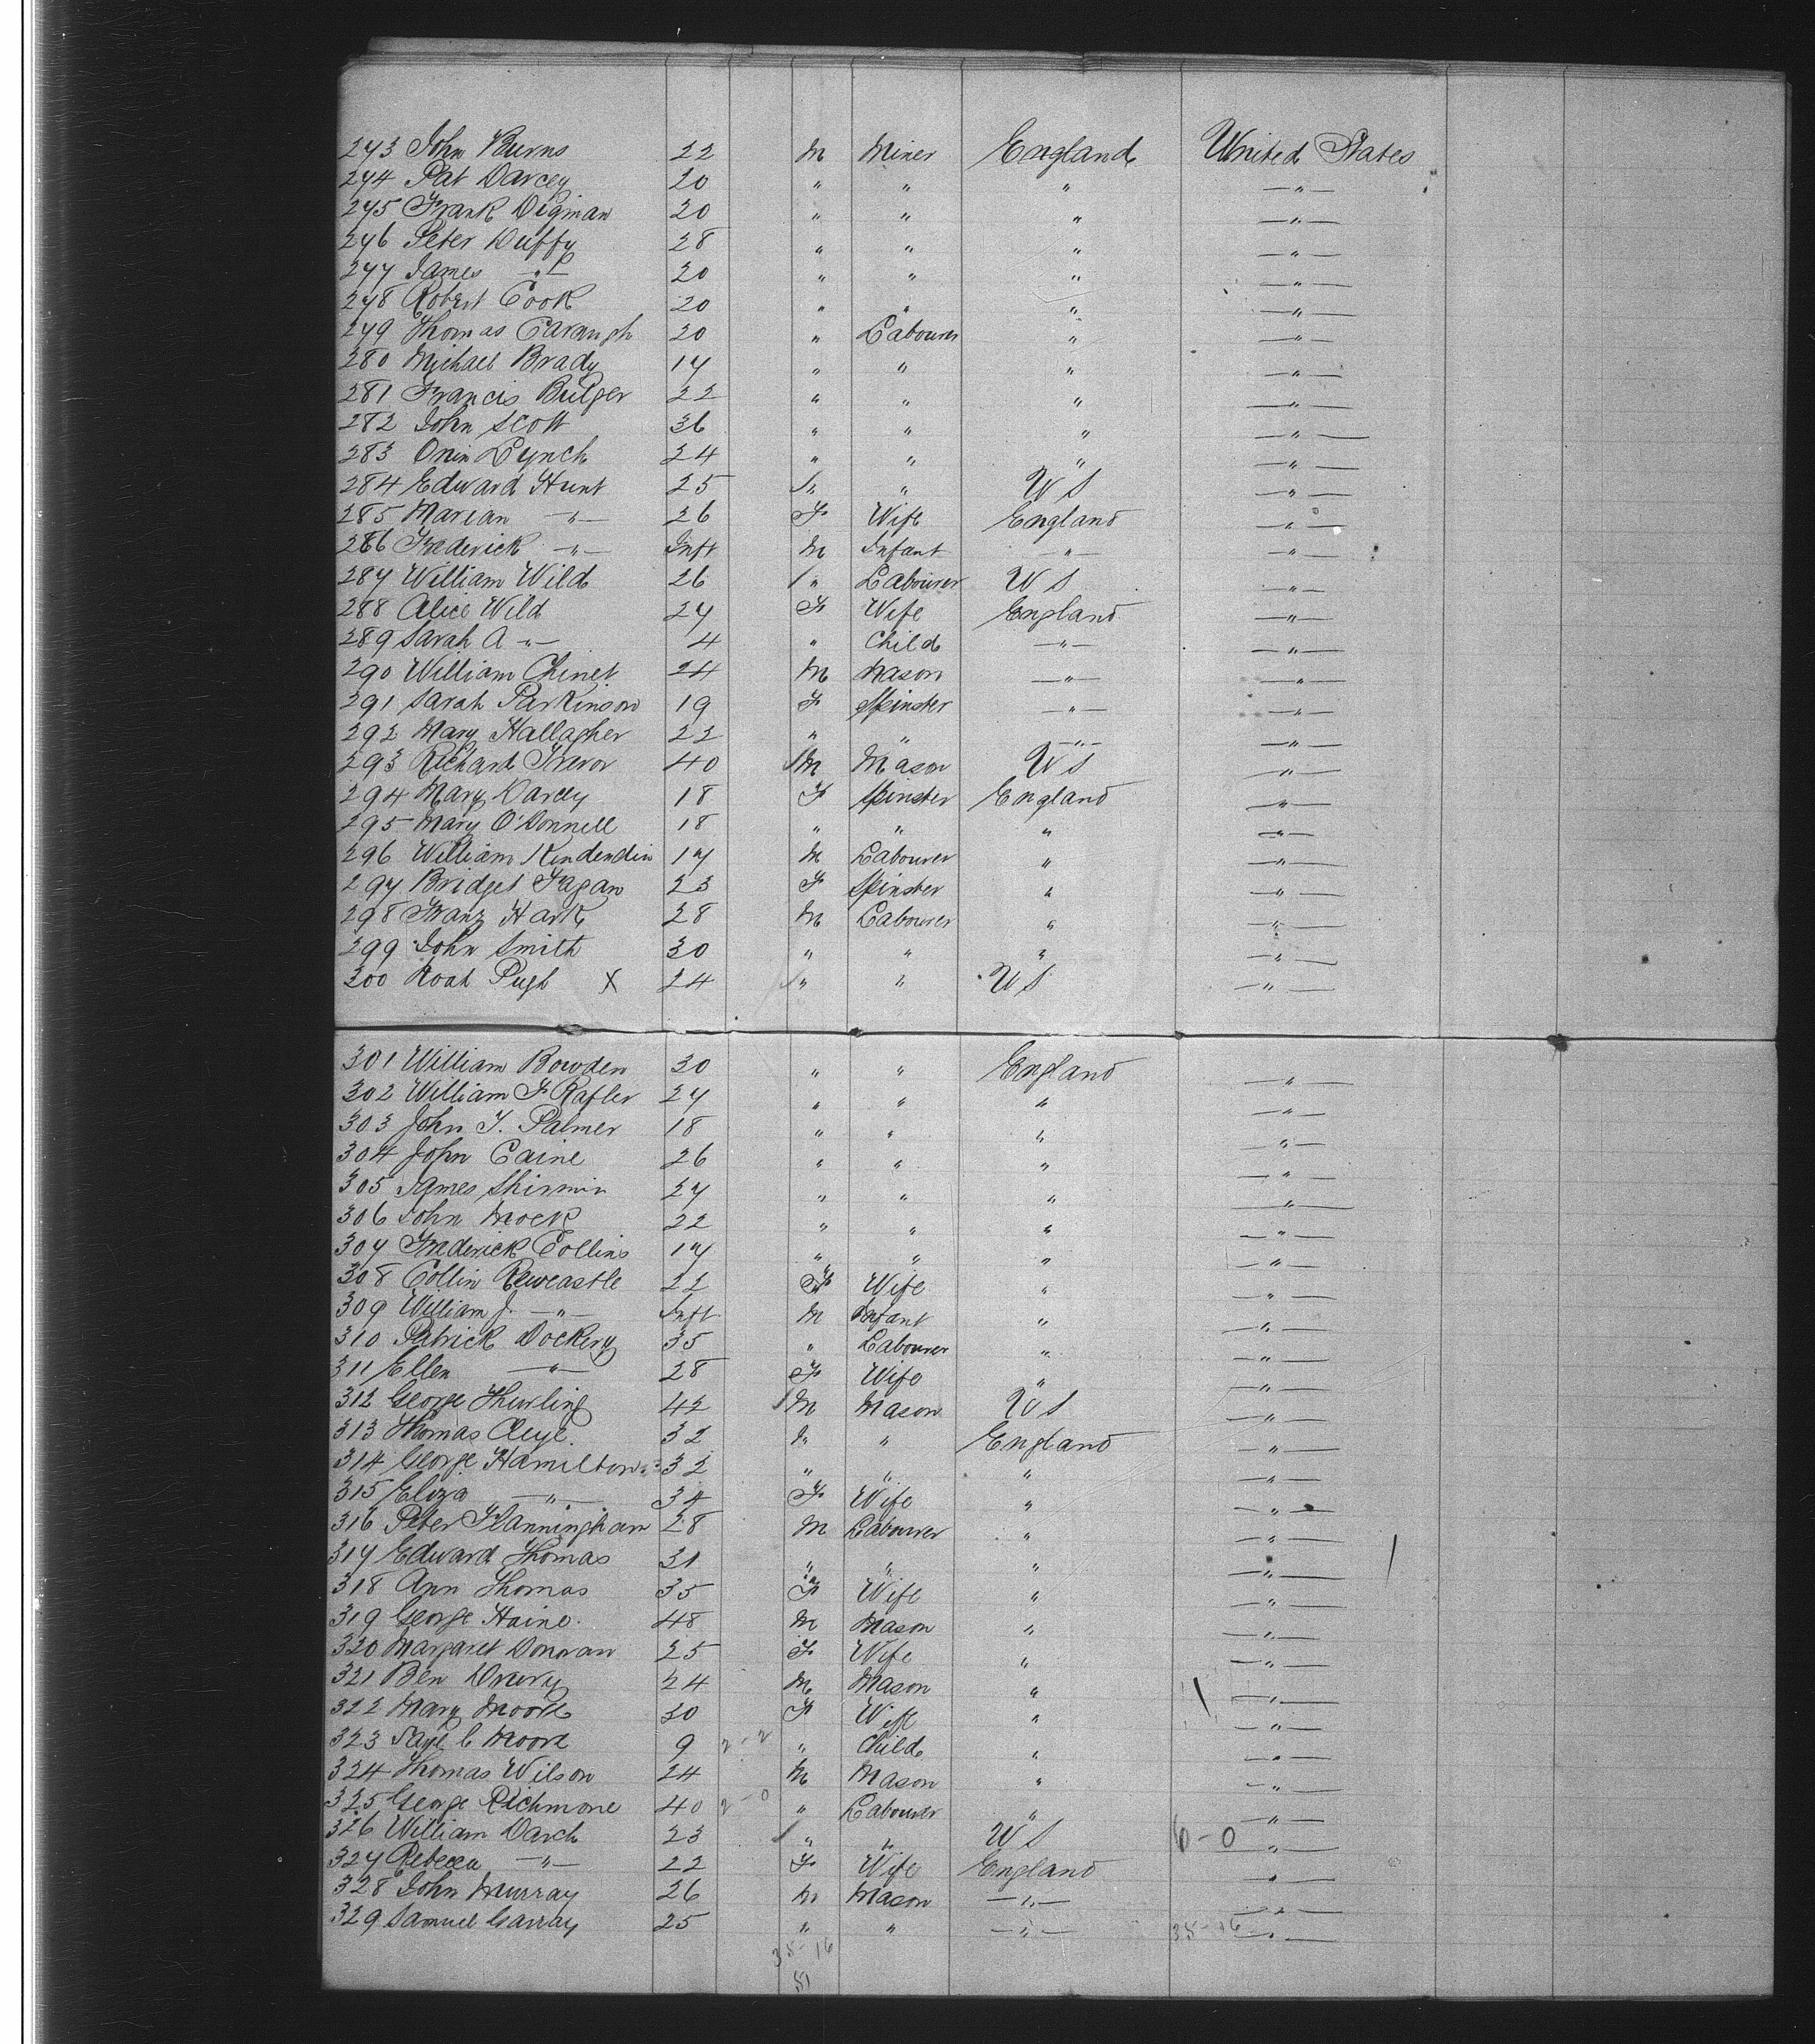 273 John Burns 22 M Miner England United States
274 Pat Darcey 20 " " " —"—
275 Frank Digman 20 " " " —"—
276 Peter Duffy 28 " " " —"—
277 James —"— 20 " " " —"—
278 Robert Cook 20 " " " —"—
279 Thomas Cavaugh 20 " Labourer " —"—
280 Michael Brady 17 " " " —"—
281 Francis Bulger 22 " " " —"—
282 John Scott 36 " " " —"—
283 Lynch 24 " " " —"—
284 Edward Hunt 25 " " US —"—
285 Marian —"— 26 F Wife England —"—
286 Frederick —"— Inft M Infant —"— —"—
287 William Wild 26 " Labourer US —"—
288 Alice Wild 27 F Wife England —"—
289 Sarah A —"— 4 " Child —"— —"—
290 William Chinet 24 M Mason —"— —"—
291 Sarah Parkinson 19 F Spinster —"— —"—
292 Mary Hallagher 22 " " —"— —"—
293 Richard Trevor 40 M Mason US —"—
294 Mary Darcey 18 F Spinster England —"—
295 Mary O'Donnell 18 " " " —"—
296 William Kindendin 17 M Labourer " —"—
297 Bridget Fagan 23 F Spinster " —"—
298 Franz Hark 28 M Labourer " —"—
299 John Smith 30 " " " —"—
300 Noah Pugh X 24 " " US —"—
301 William Bowden 30 " " England —"—
302 William F Rafler 27 " " " —"—
303 John T. Palmer 18 " " " —"—
304 John Caine 26 " " " —"—
305 James Shirmin 27 " " " —"—
306 John Mock 22 " " " —"—
307 Frederick Collins 17 " " " —"—
308 Collin Rewcastle 22 F Wife " —"—
309 William J. —"— Inft M Infant " —"—
310 Patrick Dockery 35 " Labourer " —"—
311 Ellen —"— 28 F Wife " —"—
312 George Thurling 42 M Mason US —"—
313 Thomas 32 " " England —"—
314 George Hamilton 32 " " " —"—
315 Eliza —"— 34 F Wife " —"—
316 Peter Flanningham 28 M Labourer " —"—
317 Edward Thomas 31 " " " —"—
318 Ann Thomas 35 F Wife " —"—
319 George Haine 48 M Mason " —"—
320 Margaret Donovan 25 F Wife " —"—
321 Ben Drury 24 M Mason " —"—
322 Mary Moore 30 F Wife " —"—
323 C Moore 9 2-2 " Child " —"—
324 Thomas Wilson 24 M Mason " —"—
325 George Richmone 40 2-0 " Labourer " —"—
326 William Darch 23 " " US 6-0 —"—
327 Rebecca —"— 22 F Wife England —"—
328 John Murray 26 M Mason —"— —"—
329 Samuel Garray 25 " " —"— 35-16 —"—
35-16
51